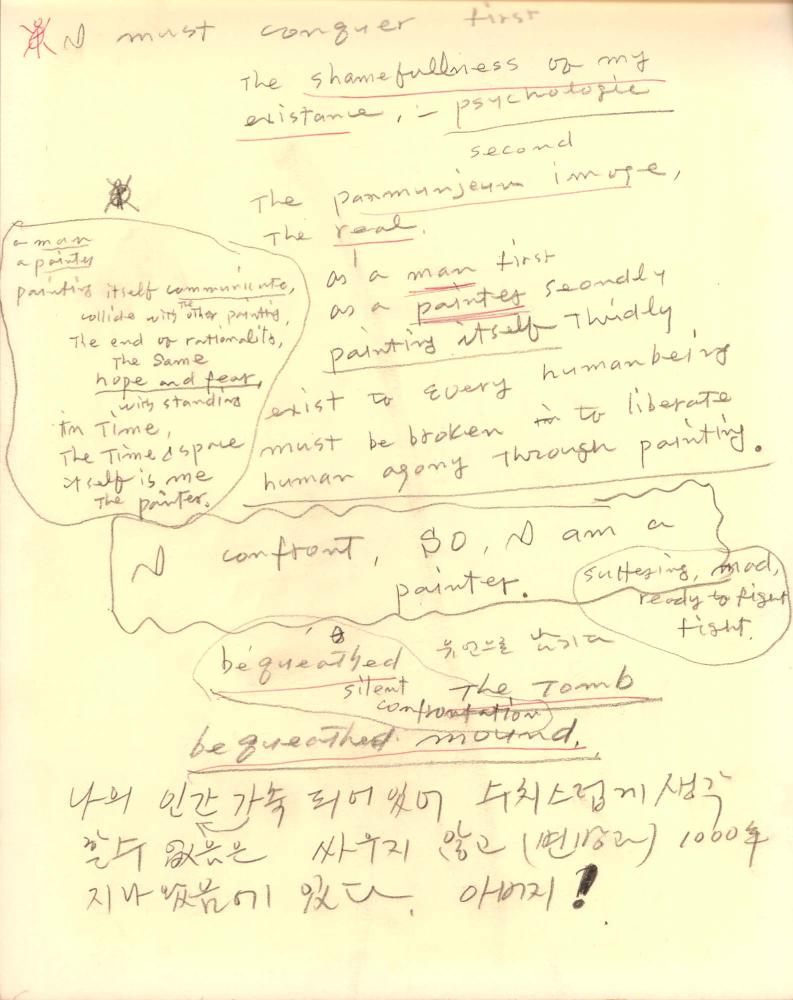 I must conquer first
The shamefullness of my
existance, - psychologic
second
The panmunjeum image,
The real.
as a man first
as a painter secondly
painting itself Thirdly
exist to every humanbeing
must be broken to liberate
human agony Through painting.
a man
a painter
painting itself communicate,
collide with The other painting,
The end of rationality,
The Same
hope and fear,
withstanding
in Time,
The Time & space
itself is me
The painter.
I confront, SO, I am a
painter.
suffering, mad,
ready to fight
fight.
bequeathed 유언으로 남기다
silent The Tomb
confrontation
bequeathed mound.
나의 인간 되어 있어 수치스럽게 생각
할수 없음은 싸우지 않고 1000年
지나왔음에 있다. 아버지!